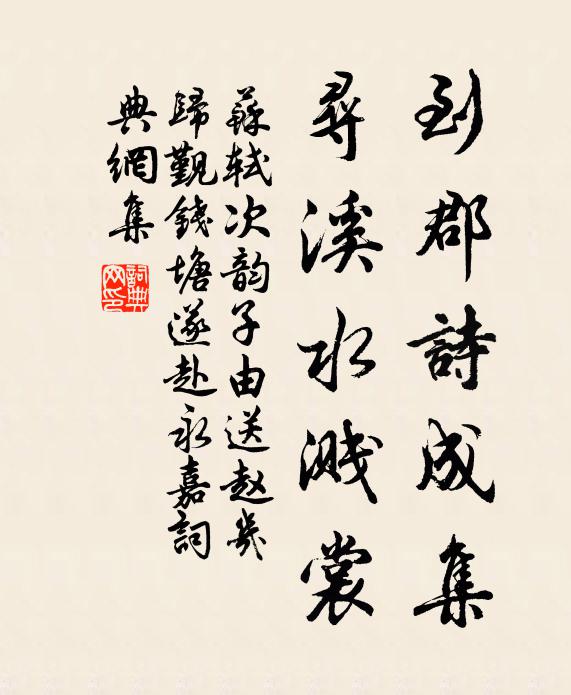 到郡詩成集
尋溪水濺裳
蘇軾次韵子由送赵㠬
歸觐錢塘遂赴永嘉詞
典網集
詞典网印